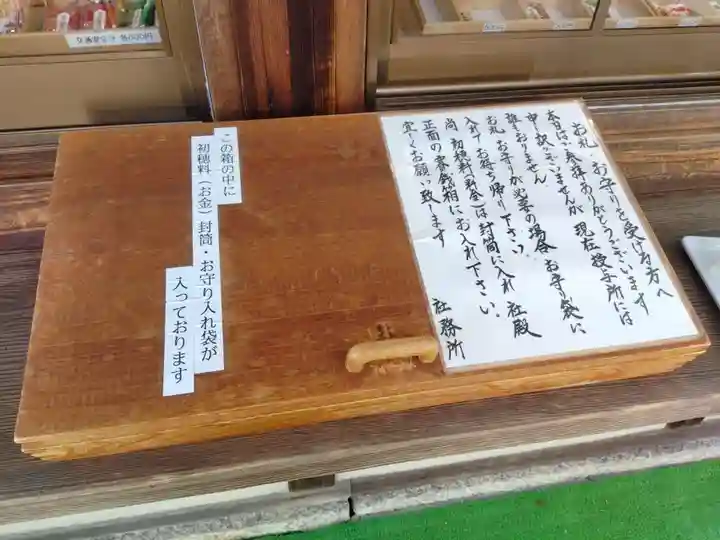 お札・お守りを受ける方へ
本日はご参拝ありがとうございます
申し訳ございませんが 現在授与所には
誰もおりません
お札、お守りが必要の場合、お守り袋に
入れてお持ち帰り下さい。
尚、初穂料(料金)は封筒に入れ 社殿
正面の賽銭箱にお入れ下さい。
宜しくお願い致します
社務所
この箱の中に
初穂料(お金)封筒・お守り入れ袋が
入っております